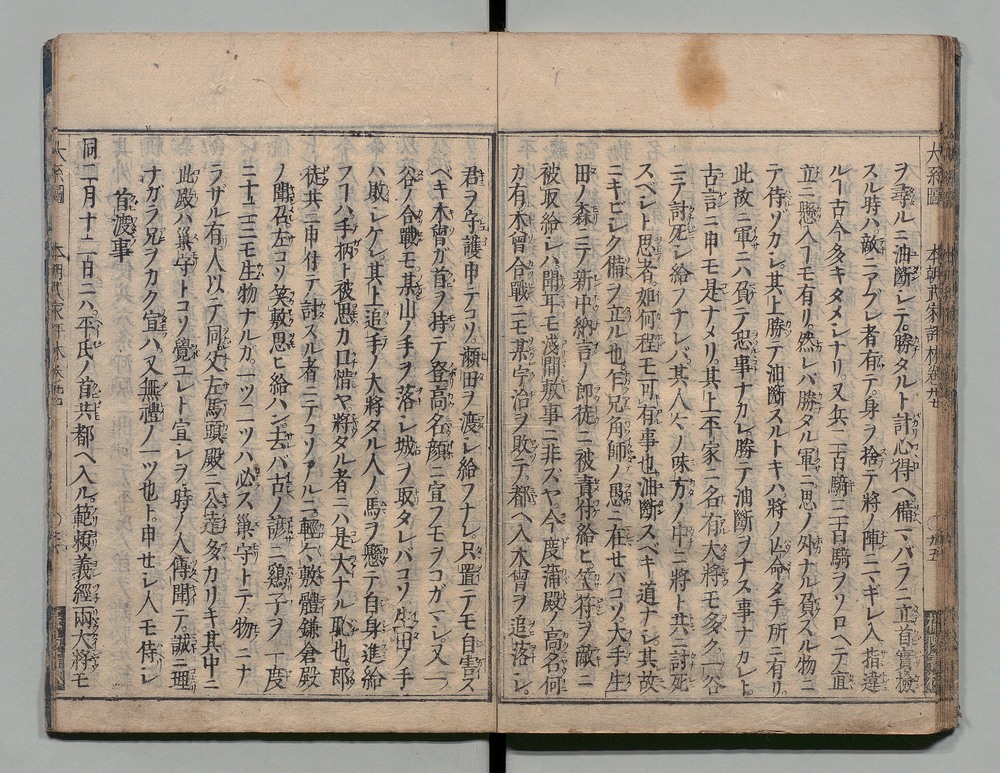 ヲ尋ルニ油斷シテ勝タルト計心得ヘ備ヘバラニ立首實檢
スル時ハ敵ニアブレ者有テ身ヲ捨テ將ノ陣ニマギレ入指違
ルコト古今多キタメシナリ又兵二百騎三百騎ヲソロヘテ直
立ニ懸入コトモ有リ然レバ勝タル軍ニ思ノ外ナル負スル物ニ
テ待ソカシ其上勝テ油斷スルトキハ將ノ心命タチ所ニ有リ
此故ニ軍ニハ負テ忍事ナカレ勝テ油斷ヲナス事ナカレト
古ニ言ニ申モ是ナメリ其上平家ニ名有大將モ多ク一谷
ニテ討死シ給フナレバ其人々ノ味方ノ中ニ將ト共ニ討死
スベシト思者如何程モ可有事也油斷スベキ道ナシ其故
ニキビシク備ヲ正ル也乍兄角師ノ愚ニ在セバコソ大手生
田ノ森ニテ新中納言ノ郎徒ニ被責付給ヒ笠符ヲ敵ニ
被取給シハ聞耳モ淺間敷事ニ非ズヤ今度蒲殿ノ高名何
カ有木曾合戰ニモ某宇治ヲ敗テ都ヘ入木曾ヲ追落シ
君ヲ守護申テコソ瀬田ヲ渡シ給フナレ只置テモ自害ス
ベキ木曾ガ首ヲ持テ登高名顏ニ宣フモヲコガマシ又一
谷ノ合戰モ其山ノ手ヲ落シ城ヲ取タレバコソ生田ノ手
ハ敗シケレ其上追手ノ大將タル人ノ馬ヲ懸テ自身進給
フコトハ手柄ト被思カ口惜ヤ將タル者ニハ是大ナル恥也郎
徒共ニ申付テ討スル者ニテコソアルニ輕々敷體鎌倉殿
ノ聞召左コソ笑敷思ヒ給ハン去バ古諺ニ鷄子ヲ一度
ニ十二三モ生物ナルカ一ツニツハ必ス巢守トテ物ニナ
ラザル有人以テ同父左馬頭殿ニ公達多カリキ其中ニ
此殿ハ巢守トコソ覺ユレト宣シヲ時ノ人傳聞テ誠ニ理
ナガラ兄ヲカク宣ハ又無禮ノ一ツ也ト申セシ人モ侍シ
首渡事
同二月十二日ニハ平氏ノ首共都ヘ入ル範頼義經兩大將モ